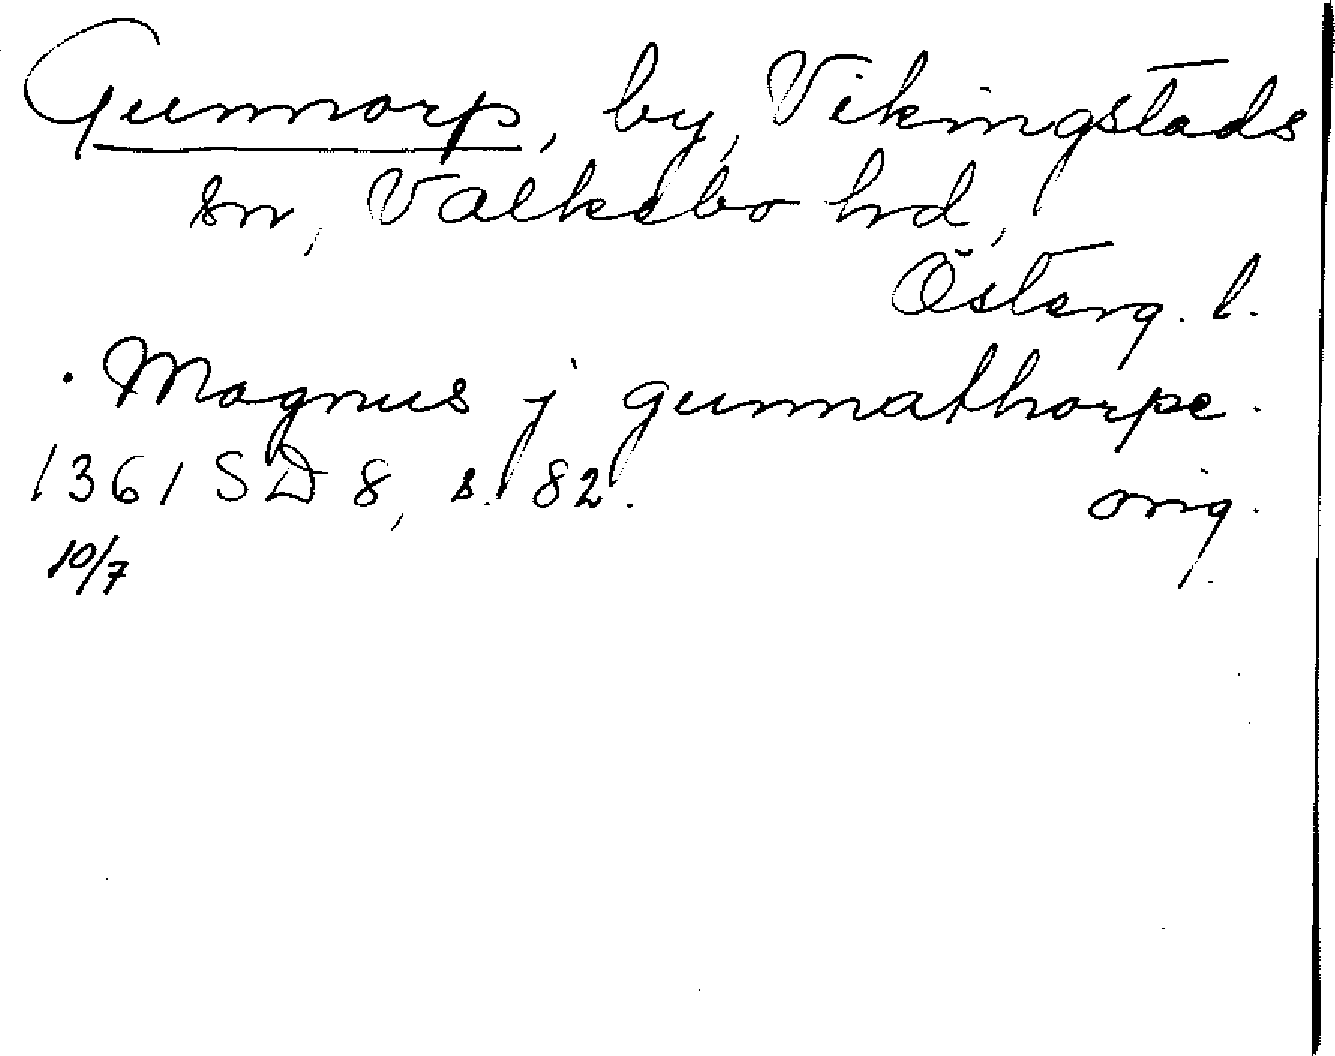 Gunnorp, by, Vikingstads
sn, Valkebo hrd,
Österg. l.
. Magnus j gunnathorpe.
1361 SD 8, s. 82. orig.
10/7